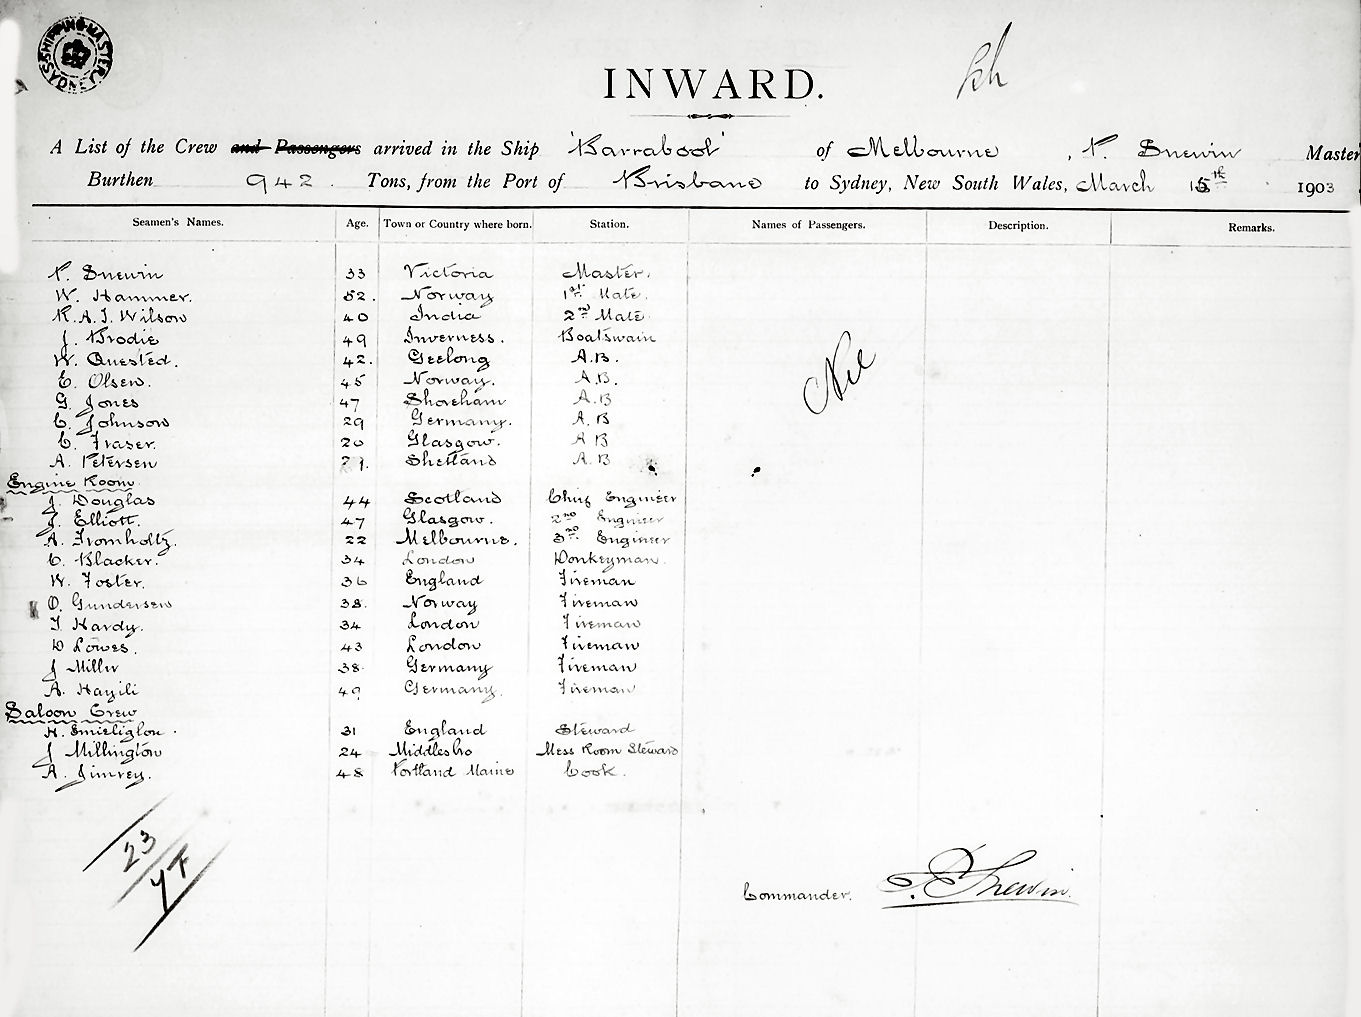 SHIPPING MASTER SYDNEY
INWARD.
A List of the Crew and Passengers arrived in the Ship 'Barrabool' of Melbourne, P. Snewin Master
Burthen 942. Tons, from the Port of Brisbane to Sydney, New South Wales, March 15th 1903
Seamen's Names. Age. Town or Country where born. Station. Names of Passengers. Description. Remarks.
P. Snewin 33 Victoria Master.
W. Hammer. 52. Norway 1st Mate.
R.A.J. Wilson 40 India 2nd Mate
J. Brodie 49 Inverness. Boatswain
W. Quested. 42. Geelong A.B.
E. Olsen. 45 Norway. A.B.
G. Jones 47 Shoreham A.B
C. Johnson 29 Germany. A.B
C. Fraser. 20 Glasgow. A B
A. Petersen Shetland A.B
Nil
Engine Room.
J. Douglas 44 Scotland Chief Engineer
J. Elliott. 47 Glasgow. 2nd Engineer
A. Fromholtz. 22 Melbourne. 3rd Engineer
C. Blacker. 34 London Donkeyman.
W. Foster. 36 England Fireman
O. Gundersen 38. Norway Fireman
T. Hardy. 34 London Fireman
D Lowes. 43 London Fireman
J Miller 38. Germany Fireman
A. 49 Germany. Fireman
Saloon Crew
H. 31 England Steward
J Millington 24 Middlesbro Mess Room Steward
A. 48 Portland Maine Cook.
23
Commander. P. Snewin.